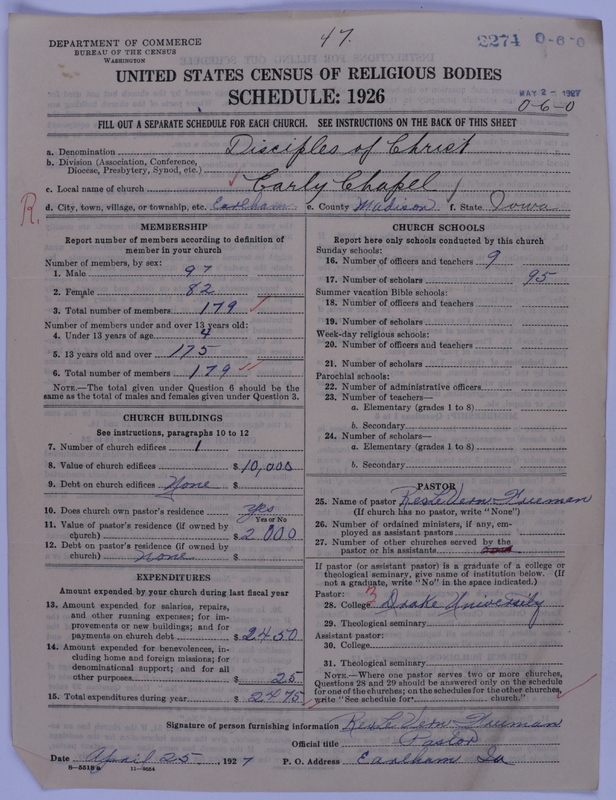 DEPARTMENT OF COMMERCE
BUREAU OF THE CENSUS
WASHINGTON
47.
2274 0-6-0
UNITED STATES CENSUS OF RELIGIOUS BODIES
SCHEDULE: 1926
MAY 2 - 1927
0-6-0
FILL OUT A SEPARATE SCHEDULE FOR EACH CHURCH. SEE INSTRUCTIONS ON THE BACK OF THIS SHEET
a. Denomination Disciples of Christ
b. Division (Association, Conference, Diocese, Presbytery, Synod, etc.)
c. Local name of church Early Chapel
R.
d. City, town, village, or township, etc. Earlham e. County Madison f. State Iowa
MEMBERSHIP
Report number of members according to definition of member in your church
Number of members, by sex:
1. Male 97
2. Female 82
3. Total number of members 179
Number of members under and over 13 years old:
4. Under 13 years of age 4
5. 13 years old and over 175
6. Total number of members 179
NOTE.—The total given under Question 6 should be the same as the total of males and females given under Question 3.
CHURCH BUILDINGS
See instructions, paragraphs 10 to 12
7. Number of church edifices 1
8. Value of church edifices $ 10,000
9. Debt on church edifices None $
10. Does church own pastor's residence yes
Yes or No
11. Value of pastor's residence (if owned by church) $ 2000
12. Debt on pastor's residence (if owned by church) None $
EXPENDITURES
Amount expended by your church during last fiscal year
13. Amount expended for salaries, repairs, and other running expenses; for improvements or new buildings; and for payments on church debt $ 2450
14. Amount expended for benevolences, including home and foreign missions; for denominational support; and for all other purposes $ 25
15. Total expenditures during year $ 2475
CHURCH SCHOOLS
Report here only schools conducted by this church
Sunday schools:
16. Number of officers and teachers 9
17. Number of scholars 95
Summer vacation Bible schools:
18. Number of officers and teachers
19. Number of scholars
Week-day religious schools:
20. Number of officers and teachers
21. Number of scholars
Parochial schools:
22. Number of administrative officers
23. Number of teachers—
a. Elementary (grades 1 to 8)
b. Secondary
24. Number of scholars—
a. Elementary (grades 1 to 8)
b. Secondary
PASTOR
25. Name of pastor Vern
(If church has no pastor, write "None")
26. Number of ordained ministers, if any, employed as assistant pastors
27. Number of other churches served by the pastor or his assistants
If pastor (or assistant pastor) is a graduate of a college or theological seminary, give name of institution below. (If not a graduate, write "No" in the space indicated.)
Pastor:
28. College 3 Drake University
29. Theological seminary
Assistant pastor:
30. College
31. Theological seminary
NOTE.—Where one pastor serves two or more churches, Questions 28 and 29 should be answered only on the schedule for one of the churches; on the schedules for the other churches, write "See schedule for church."
Signature of person furnishing information Vern
Official title Pastor
Date April 25, 1927 P. O. Address Earlham Ia
8-5519 a 11-9884